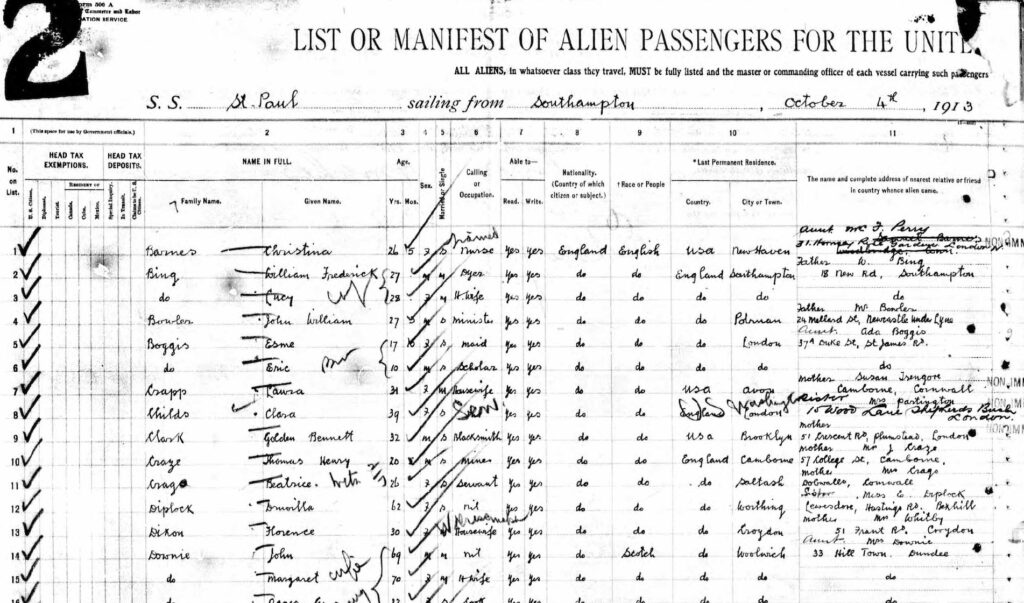 2
Form 500 A
of Commerce and Labor
ATION SERVICE
LIST OR MANIFEST OF ALIEN PASSENGERS FOR THE UNITE
ALL ALIENS, in whatsoever class they travel, MUST be fully listed and the master or commanding officer of each vessel carrying such passengers
S. S. St. Paul sailing from Southampton, October 4th, 1913
1 2 3 4 5 6 7 8 9 10 11
(This space for use by Government officials.)
No. on List. HEAD TAX EXEMPTIONS. HEAD TAX DEPOSITS. NAME IN FULL. Age. Sex. Married or Single Calling or Occupation. Able to— Nationality. (Country of which citizen or subject.) †Race or People *Last Permanent Residence. The name and complete address of nearest relative or friend in country whence alien came.
U. S. Citizen. Diplomat. Tourist. RESIDENT OF Canada. Cuba. Mexico. Special Inquiry. In Transit. Family Name. Given Name. Yrs. Mos. Read. Write. Country. City or Town.
Aunt Mrs F. Perry
1 Barnes Christina 26 5 f s Nurse Yes Yes England English USA New Haven 31. Hornsey London
Father W. Bing
2 Bing William Frederick 27 m m Dyer Yes Yes do do England Southampton 18 New Rd, Southampton
3 do Lucy 28 f m H.wife Yes Yes do do do do do
Father Mr Bowler
4 Bowler John William 27 5 m s minister Yes Yes do do do 24 Mellard St, Newcastle under Lyne
Aunt Ada Boggis
5 Boggis Esme 17 f s maid Yes Yes do do do London 37A Duke St, St James Rd.
6 do Eric 10 m s Scholar Yes Yes do do do do do
mother Susan Trengore
7 Crapp Laura 31 f m Housewife Yes Yes do do USA Avon Camborne, Cornwall
Serv. Washington Sister Mrs Partington
8 Childs Clara 39 f s Yes Yes do do England London 10 Wood Lane Shepherds Bush London.
mother
9 Clark Golden Bennett 32 m s Blacksmith Yes Yes do do USA Brooklyn 51 Crescent Rd, Plumstead, London
mother Mrs J Craze
10 Craze Thomas Henry 20 m s miner Yes Yes do do England Camborne 57 College St, Camborne.
mother Mrs Crago
11 Crago Beatrice 26 f s Servant Yes Yes do do do Saltash Dobwalls, Cornwall
Sister Miss E. Diplock
12 Diplock Drucilla 62 f s nil Yes Yes do do do Worthing Hastings Rd. Bexhill
mother Mrs Whitby
13 Dixon Florence 30 f m Housewife Yes Yes do do do Croydon 51 Frant Rd, Croydon
Aunt Mrs Downie
14 Downie John 69 m m nil Yes Yes do Scotch do Woolwich 33 Hill Town. Dundee
15 do Margaret wife 70 f m H.wife Yes Yes do do do do do
NON IMM